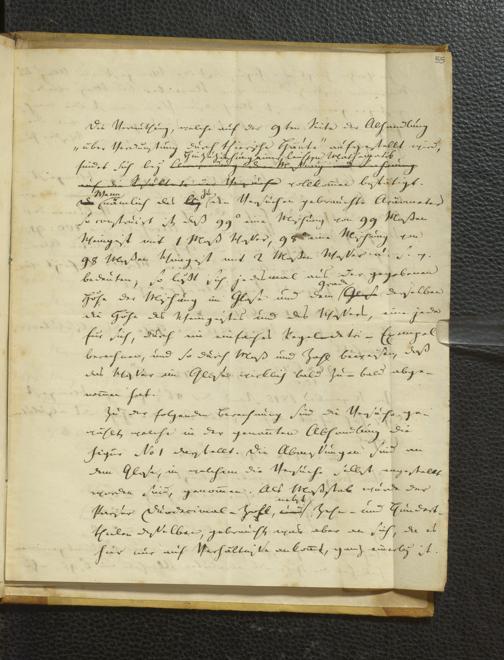 55
Die Vermuthung, welche auf der 9ten Seite der Abhandlung
„über Verdunstung durch thierische Häute“ aufgestellt wird,
findet sich bey
vollkommen bestätigt.
Wenn
nämlich das bey den Versuchen gebrauchte Aräometer
so construirt ist, daß 99° eine Mischung von 99 Maßen
Weingeist mit 1 Maß Wasser, 98° eine Mischung von
98 Maßen Weingeist mit 2 Maßen Wasser u. s. w.
bedeuten, so läßt sich jedesmal aus der gegebenen
Höhe der Mischung im Glase und dem Grad derselben
die Höhe des Weingeistes und des Wassers, eine jede
für sich, durch ein einfaches Regeldetri-Exempel
berechnen, und so durch Maß und Zahl beweisen, daß
das Wasser im Glase wirklich bald zu- bald abge-
nommen hat.
Zu der folgenden Berechnung sind die Versuche ge-
wählt, welche in der genannten Abhandlung die
Figur No 1 darstellt. Die Abmessungen sind an
dem Glase, in welchem die Versuche selbst angestellt
worden sind, genommen. Als Maßstab wurde der
Pariser Duodecimal-Zoll, Zehn- und Hundert-
theilen desselben, gebraucht, was aber an sich, da es
hier nur auf Verhältnisse ankommt, ganz einerley ist.